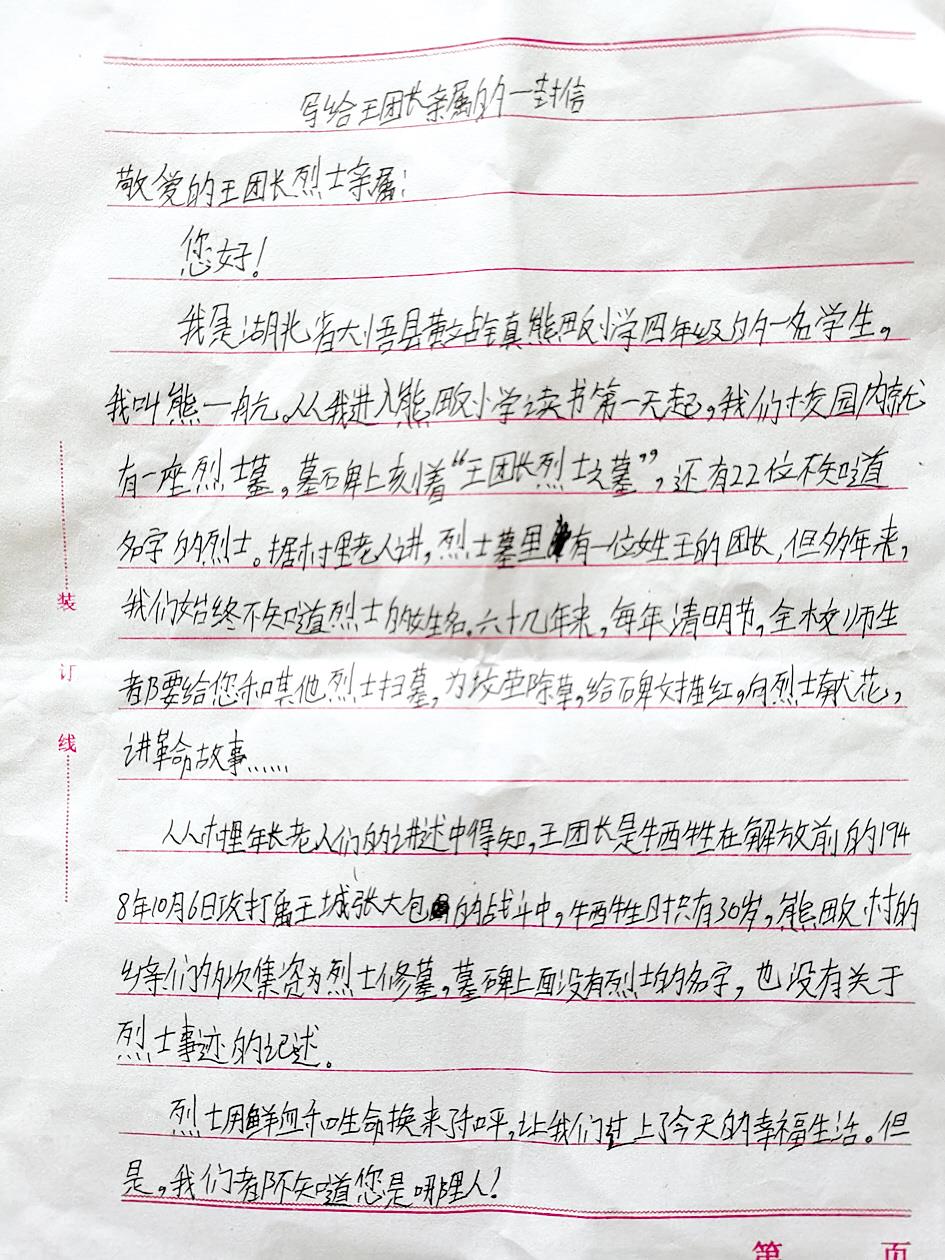 写给王团长亲属的一封信
敬爱的王团长烈士亲属:
您好!
我是湖北省大悟县黄站镇熊畈小学四年级的一名学生。
我叫熊一航。从我进入熊畈小学读书第一天起,我们校园内就
有一座烈士墓,墓碑上刻着“王团长烈士之墓”,还有22位不知道
名字的烈士。据村里老人讲,烈士墓里有一位姓王的团长,但多年来,
我们始终不知道烈士的姓名。六十几年来,每年清明节,全校师生
都要给您和其他烈士扫墓,为坟茔除草,给碑文描红,向烈士献花,
讲革命故事……
从村里年长老人们的讲述中得知,王团长是牺牲在解放前的194
8年10月6日攻打禹王城张大包的战斗中,牺牲时只有30岁,熊畈村的
乡亲们多次集资为烈士修墓,墓碑上面没有烈士的名字,也没有关于
烈士事迹的记述。
烈士用鲜血和生命换来了和平,让我们过上了今天的幸福生活。但
是,我们都不知道您是哪里人!
装
订
线
第 页